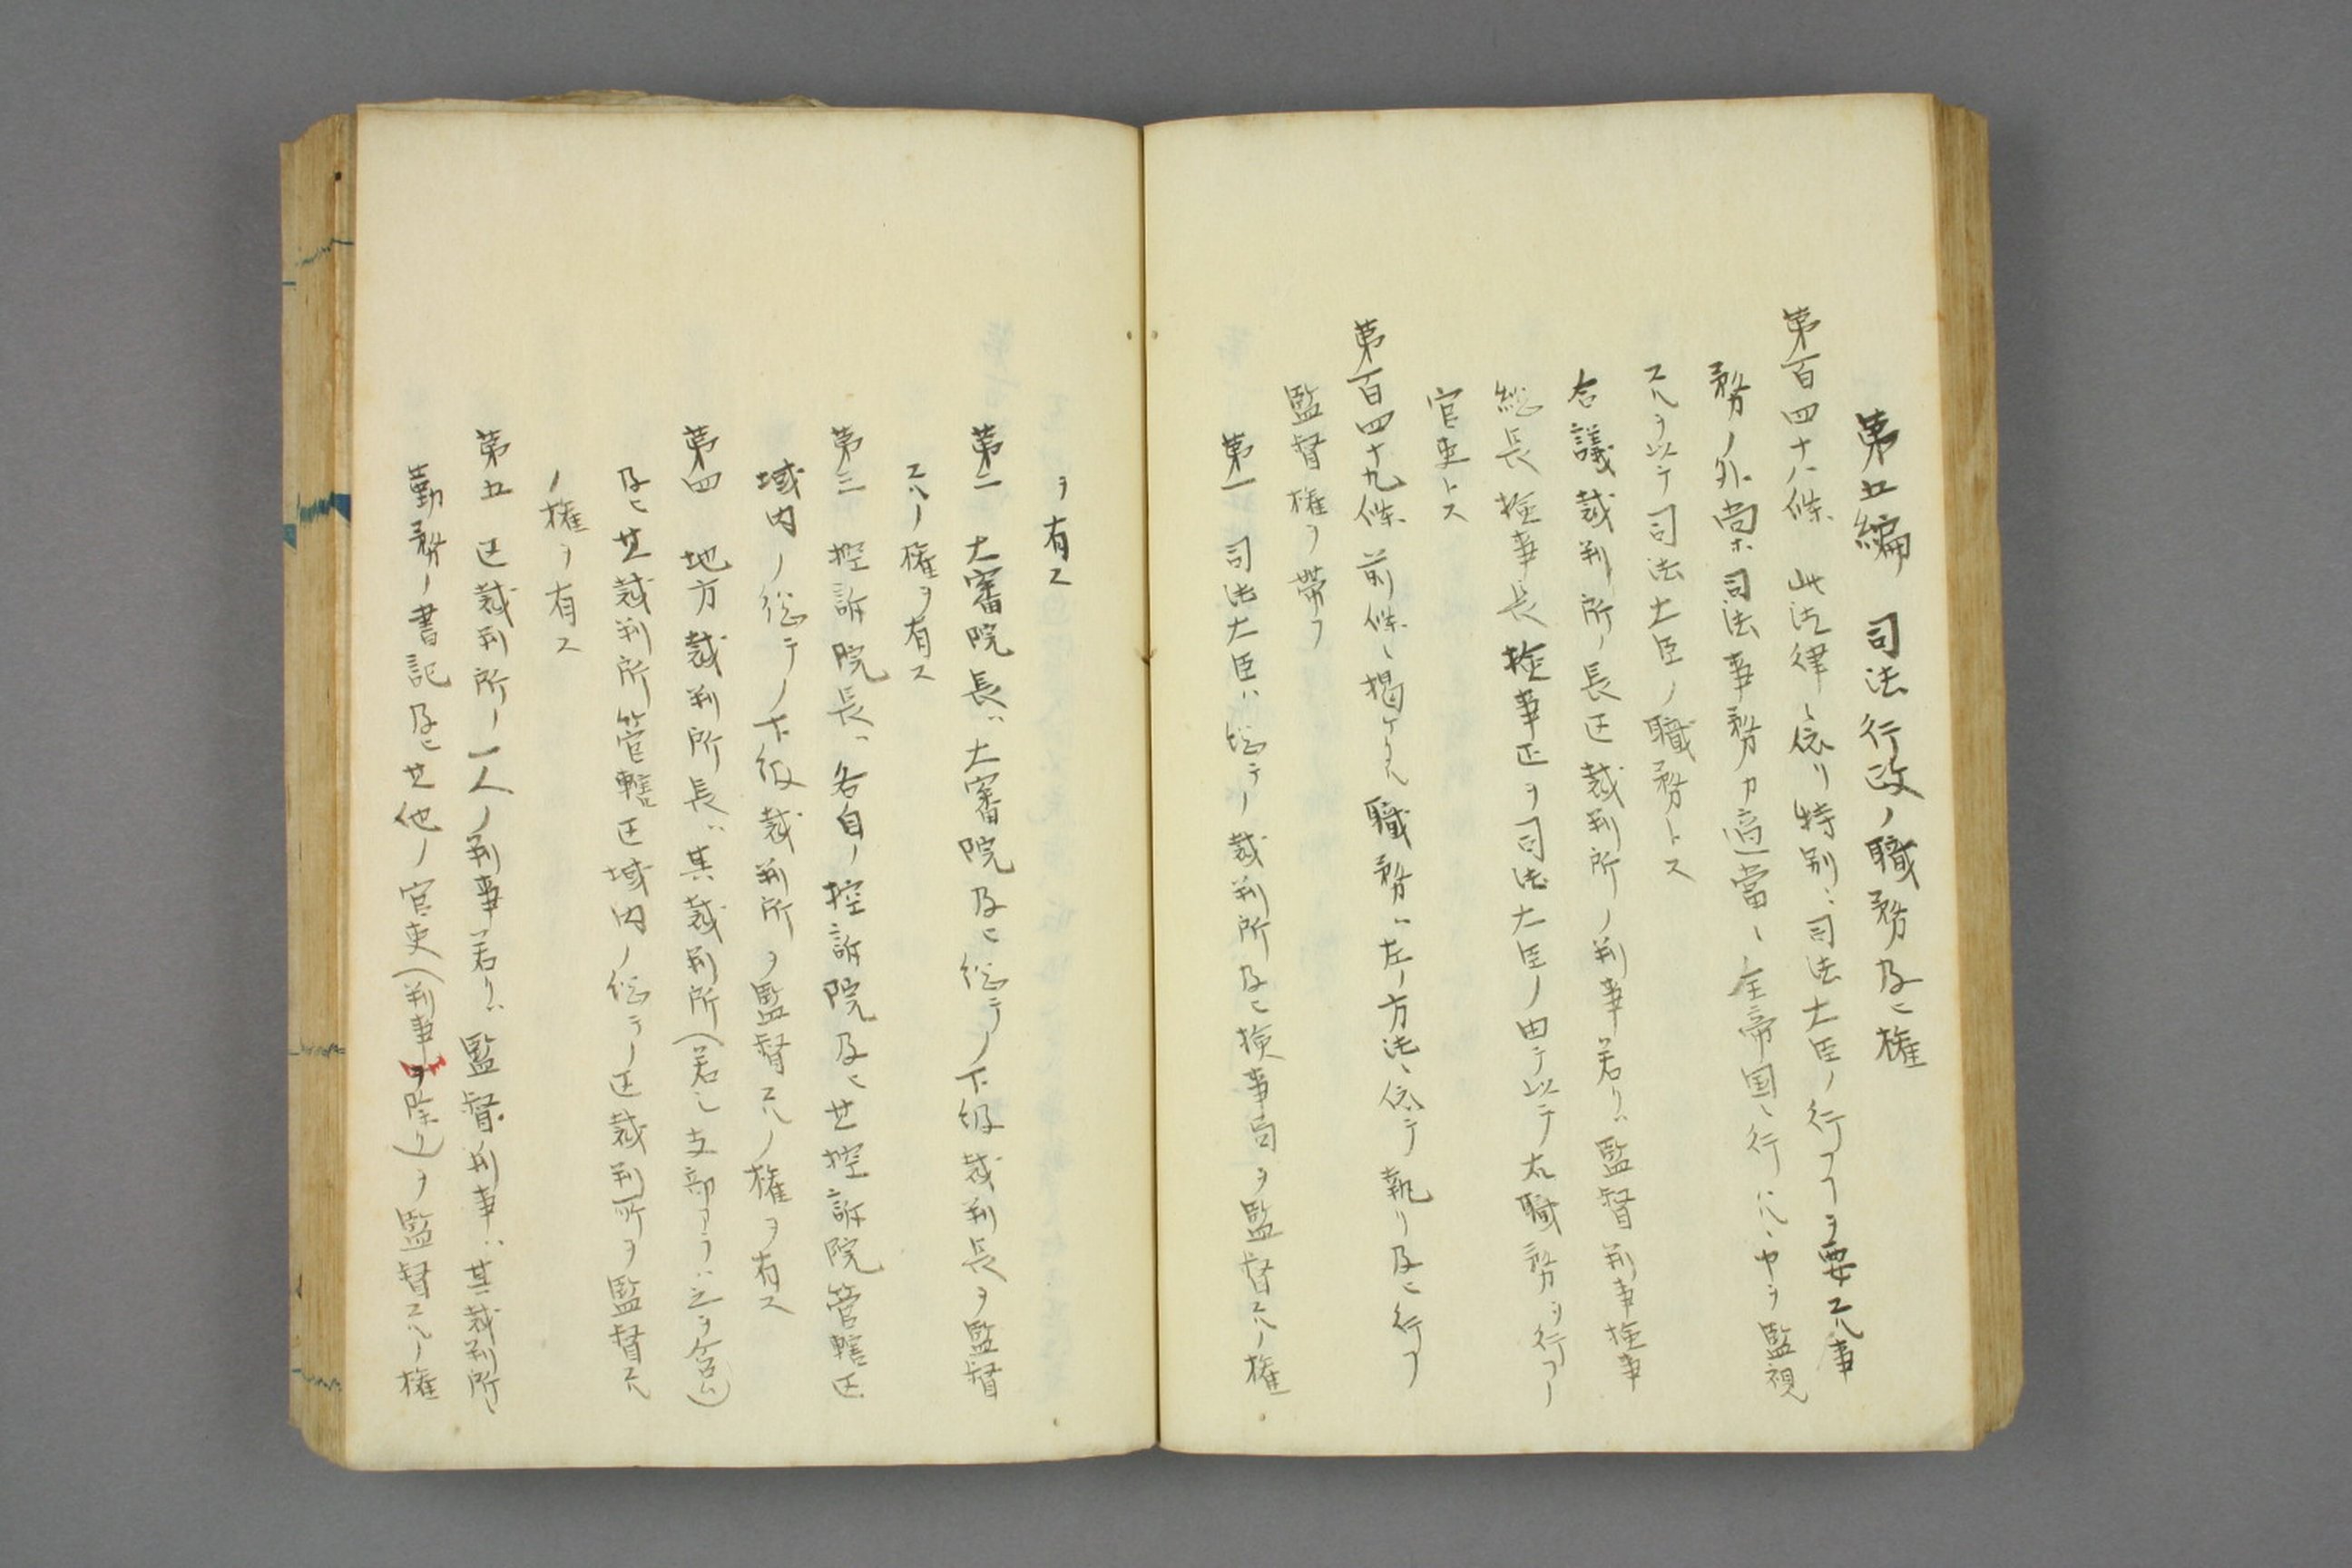 第五編　司法行政ノ職務及ヒ権
第百四十八條　此法律ニ依リ特別ニ司法大臣ノ行フヿヲ要スル事
務ノ外尚ホ司法事務カ適當ニ全帝国ニ行ハルヽヤヲ監視
スルヲ以テ司法大臣ノ職務トス
合議裁判所ノ長区裁判所ノ判事若クハ監督判事検事
総長検事長検事正ヲ司法大臣ノ由テ以テ右職務ヲ行フノ
官吏トス
第百四十九條　前條ニ掲ケタル職務ハ左ノ方法ニ依テ執リ及ヒ行フ
監督権ヲ帶フ
第一　司法大臣ハ総テノ裁判所及ヒ検事局ヲ監督スルノ権
ヲ有ス
第二　大審院長ハ大審院及ヒ総テノ下級裁判長ヲ監督
スルノ権ヲ有ス
第三　控訴院長ハ各自ノ控訴院及ヒ其控訴院管轄区
域内ノ総テノ下級裁判所ヲ監督スルノ権ヲ有ス
第四　地方裁判所長ハ其裁判所（若シ支部アラハ之ヲ含ム）
及ヒ其裁判所管轄区域内ノ総テノ区裁判所ヲ監督スル
ノ権ヲ有ス
第五　区裁判所ノ一人ノ判事若クハ監督判事ハ其裁判所ニ
勤務ノ書記及ヒ其他ノ官吏（判事ヲ除ク）ヲ監督スルノ権